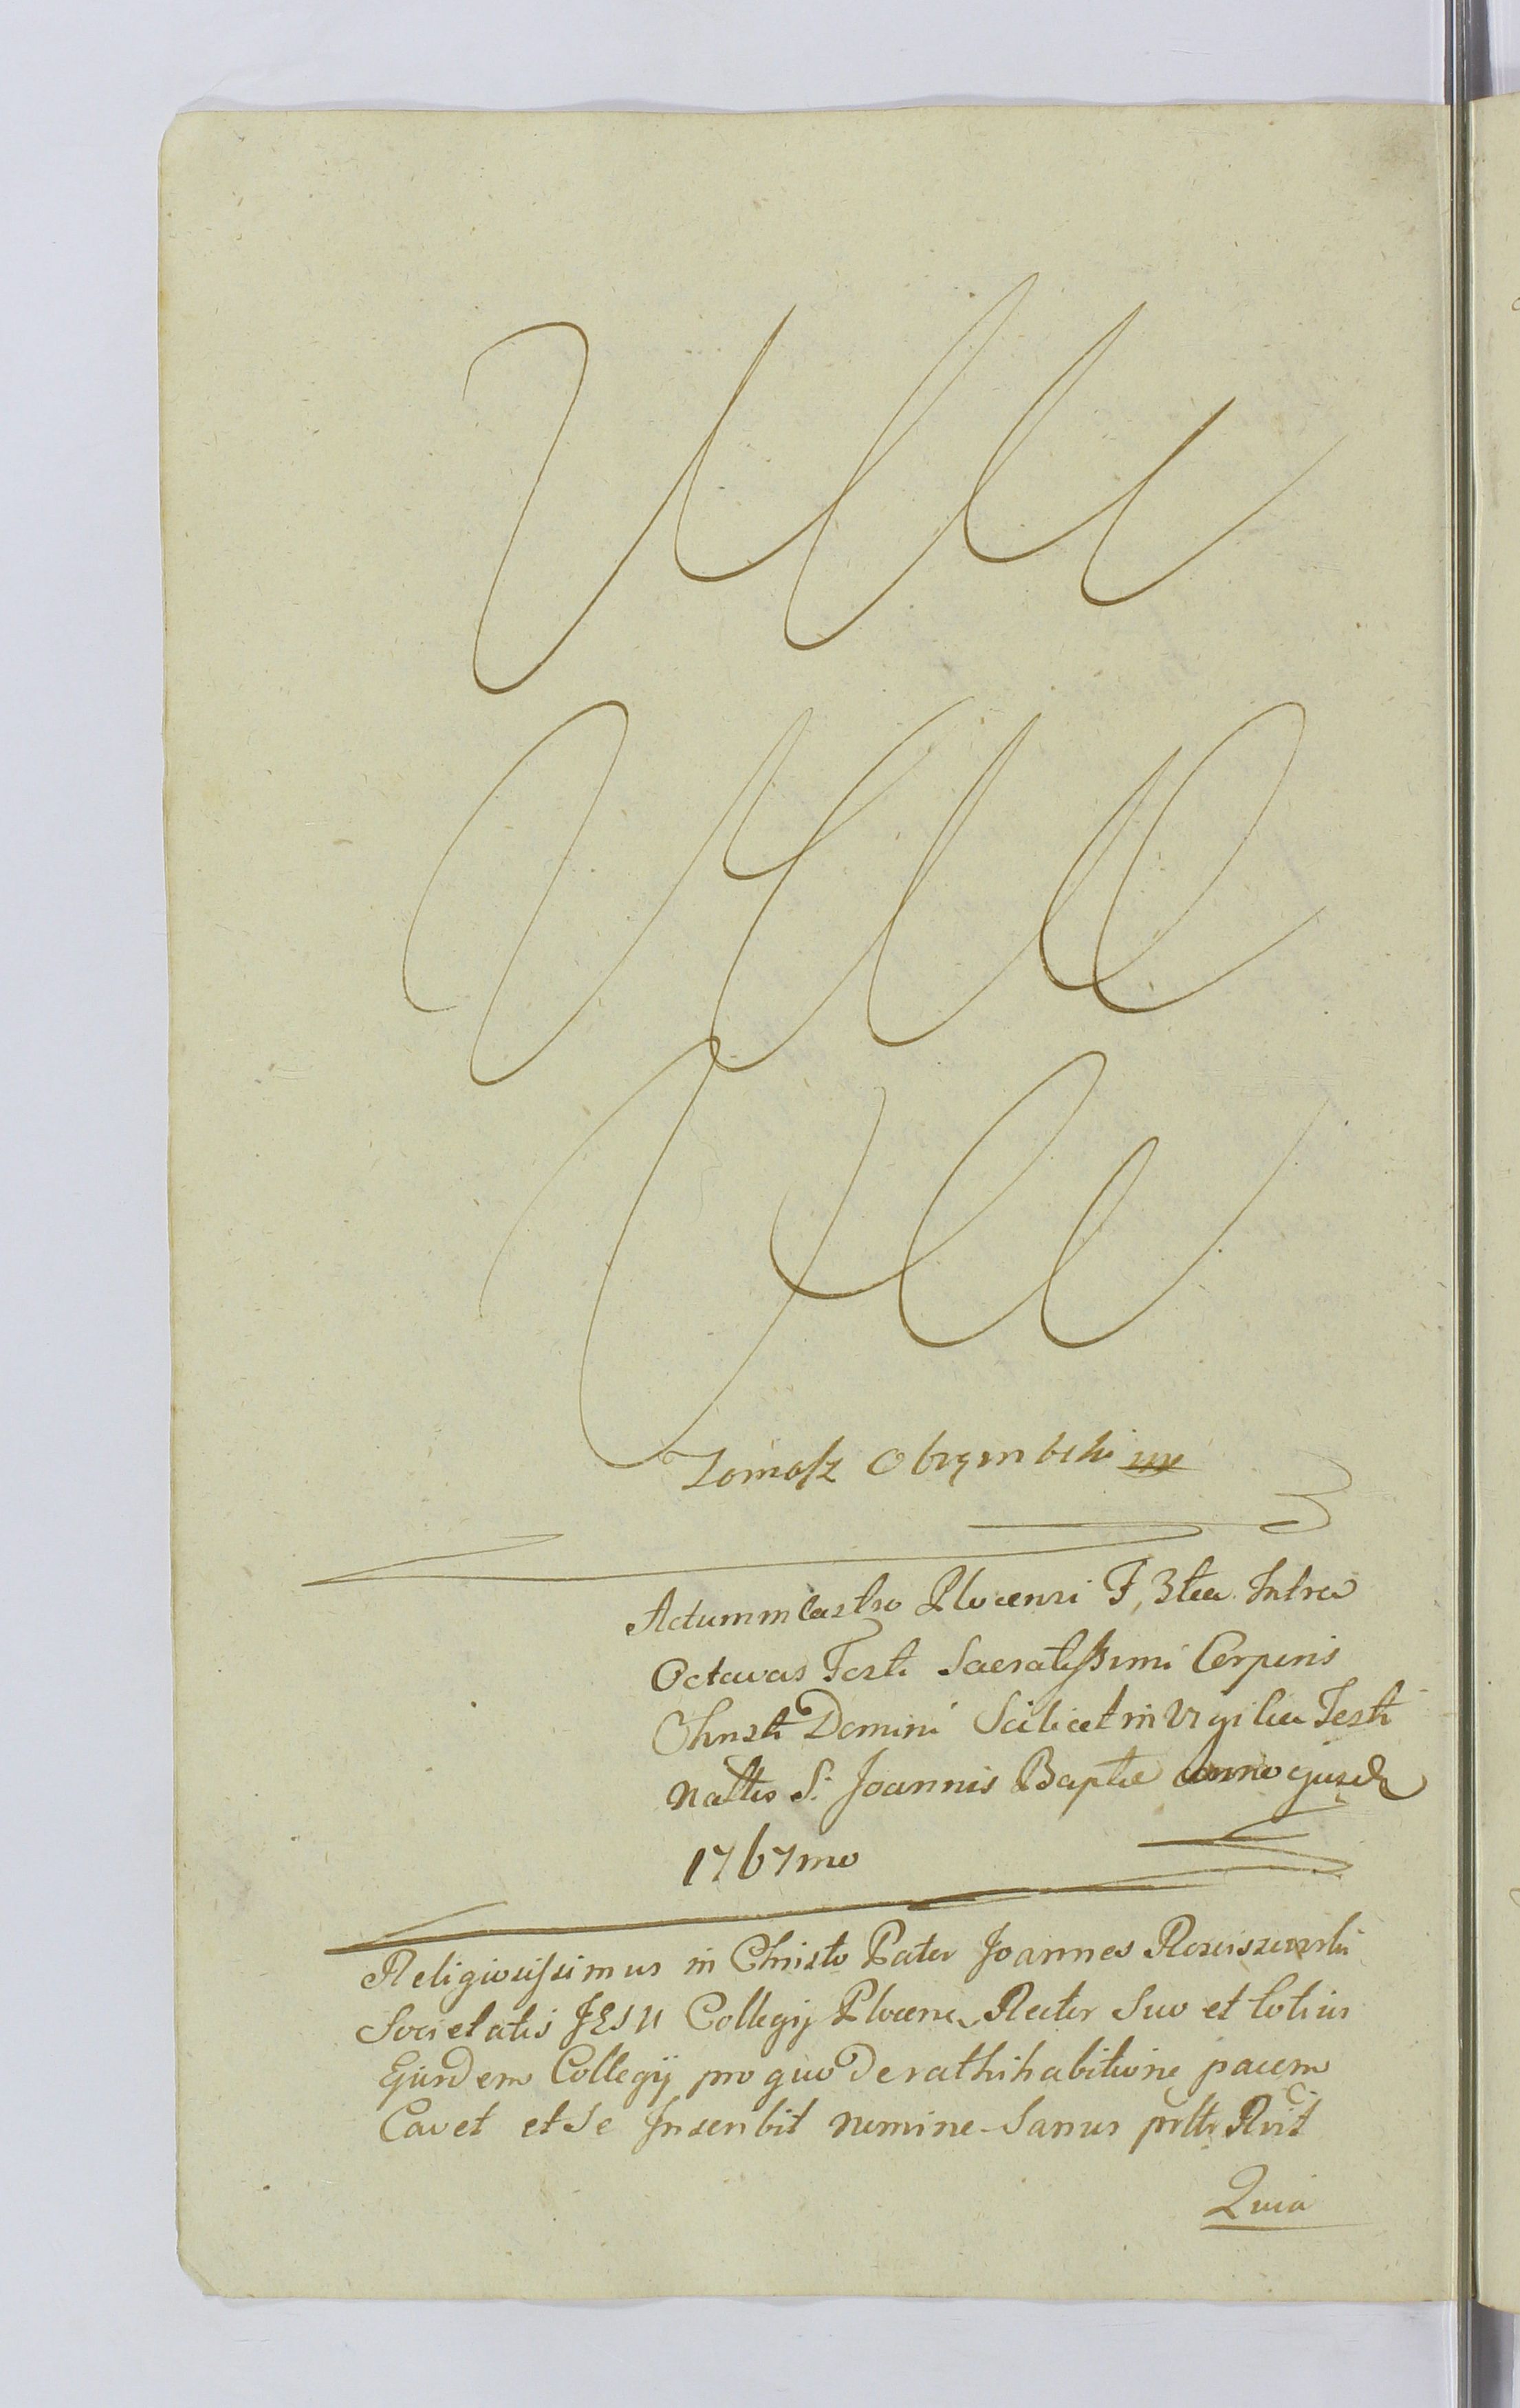 Tomasz Obrembski mp
Actum in Castro Plocensi F, 3tia Intra
Octavas Festi Sacratissimi Corporis
Christi Domini Scilicet in Vigilia Festi
Nattis S. Joannis Baptae Anno ejusd
1767mo
Religiosissimus in Christo Pater Joannes Rosciszewski
Societatis JESU Collegij Plocen Rector Suo et totius
Ejusdem Collegij pro quo De rathihabitione pacem
Cavet et Se Inscribit nomine Sanus
Quia